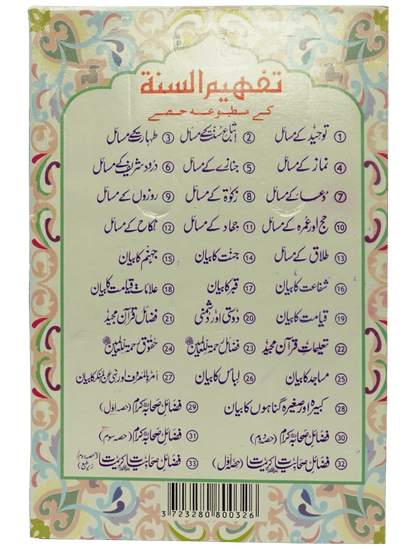 تفہیم السنة
کے مطبوعہ حصے
① توحید کے مسائل ② اتباع سنت کے مسائل ③ طہارت کے مسائل
④ نماز کے مسائل ⑤ جنازے کے مسائل ⑥ درود شریف کے مسائل
⑦ دعا کے مسائل ⑧ زکوٰۃ کے مسائل ⑨ روزوں کے مسائل
⑩ حج اور عمرہ کے مسائل ⑪ جہاد کے مسائل ⑫ نکاح کے مسائل
⑬ طلاق کے مسائل ⑭ جنت کا بیان ⑮ جہنم کا بیان
⑯ شفاعت کا بیان ⑰ قبر کا بیان ⑱ علامات قیامت کا بیان
⑲ قیامت کا بیان ⑳ دوستی اور دشمنی ㉑ فضائل قرآن مجید
㉒ تعلیمات قرآن مجید ㉓ فضائل رحمۃ للعالمین ﷺ ㉔ حقوق رحمۃ للعالمین ﷺ
㉕ مساجد کا بیان ㉖ لباس کا بیان ㉗ امر بالمعروف اور نہی عن المنکر کا بیان
㉘ کبیرہ اور صغیرہ گناہوں کا بیان ㉙ فضائل صحابہ کرام (حصہ اول)
㉚ فضائل صحابہ کرام (حصہ دوم) ㉛ فضائل صحابہ کرام (حصہ سوم)
㉜ فضائل صحابیات (حصہ اول) ㉝ فضائل صحابیات
3 723280 800326